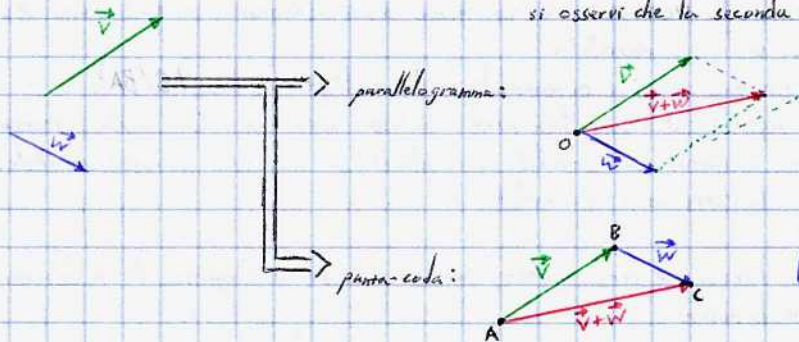 si osservi che la seconda
v⃗
w⃗
parallelogramma:
v⃗
v⃗+w⃗
O
w⃗
punta-coda:
B
v⃗
w⃗
C
A
v⃗+w⃗